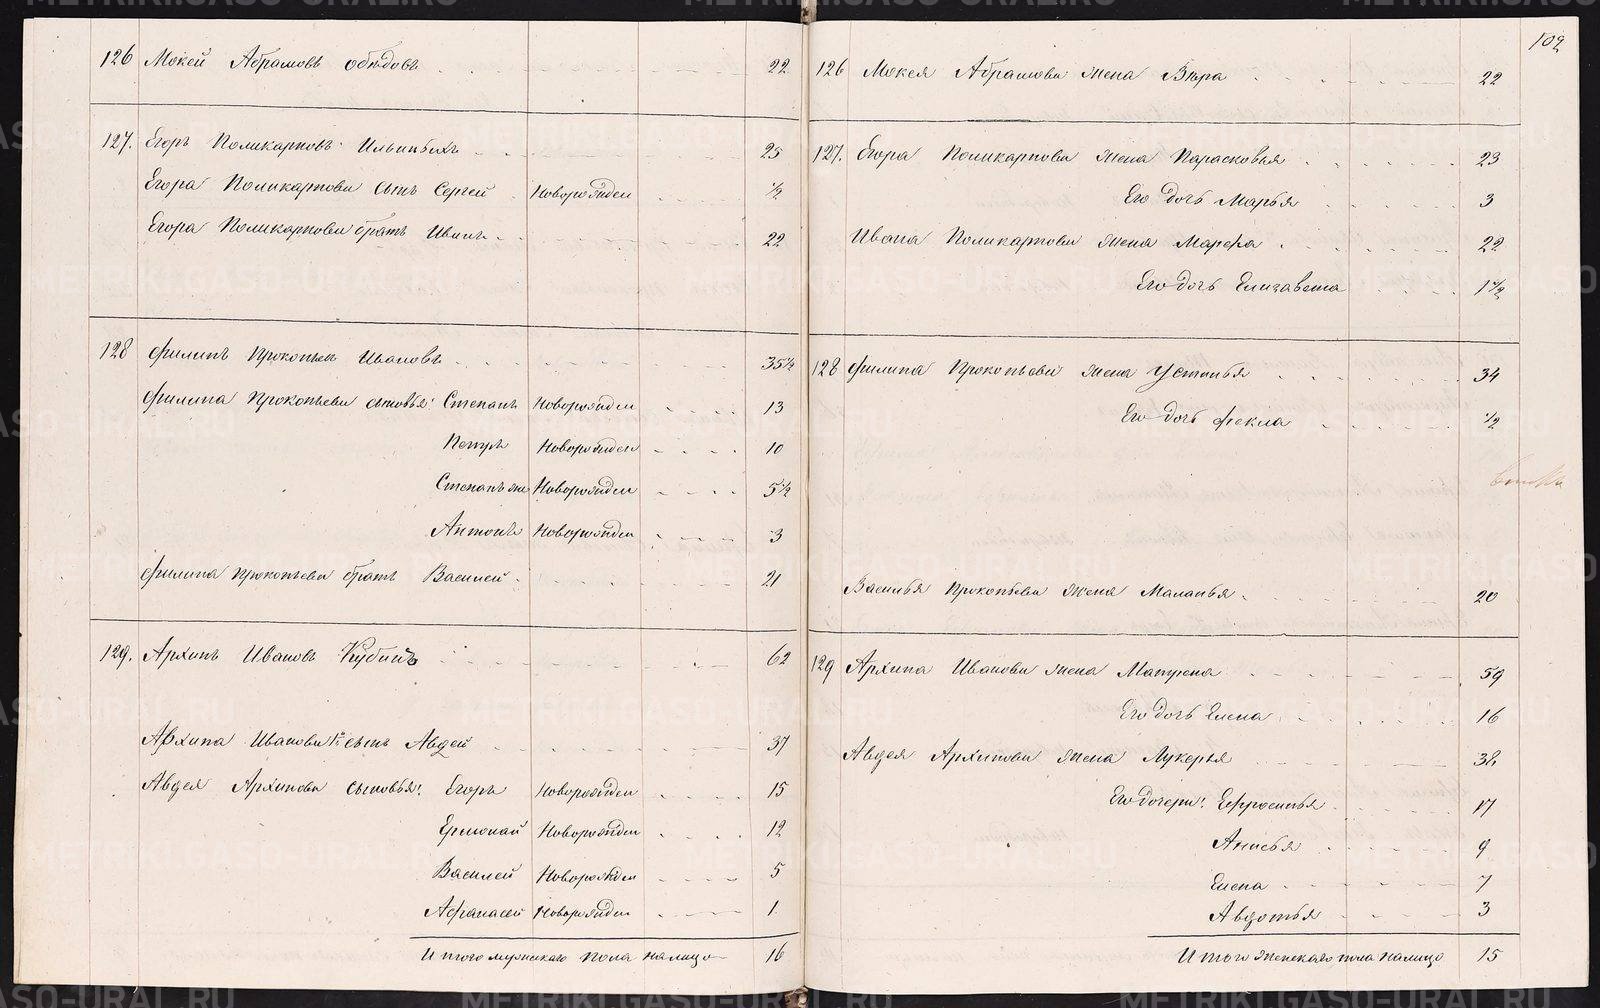 102
126 Мокей Абрамовъ Обѣдовъ 22
127. Егоръ Поликарповъ Ильиныхъ 25
Егора Поликарпова сынъ Сергей Новорожден ½
Егора Поликарпова братъ Иванъ 22
128 Филипъ Прокопьевъ Ивановъ 35½
Филипа Прокопьева сыновья: Степанъ Новорожден 13
Петръ Новорожден 10
Степанъ же Новорожден 5½
Антонъ Новорожден 3
Филипа Прокопьева братъ Василей 21
129. Архипъ Ивановъ Кубинъ 62
Архипа Иванова 1й сынъ Авдей 37
Авдея Архипова сыновья: Егоръ Новорожден 15
Ермолай Новорожден 12
Василей Новорожден 5
Афанасей Новорожден 1
Итого мужскаго пола налицо 16
126 Мокея Абрамова жена Вѣра 22
127. Егора Поликарпова жена Парасковья 23
Его дочь Марья 3
Ивана Поликарпова жена Марфа 22
Его дочь Елизавета 1½
128 Филипа Прокопьева жена Устинья 34
Его дочь Фекла ½
Василья Прокопьева жена Маланья 20
129 Архипа Иванова жена Матрена 59
Его дочь Елена 16
Авдея Архипова жена Лукерья 38
Его дочери: Ефросинья 17
Анисья 9
Елена 7
Авдотья 3
Итого женскаго пола налицо 15
METRIKI.GASO-URAL.RU